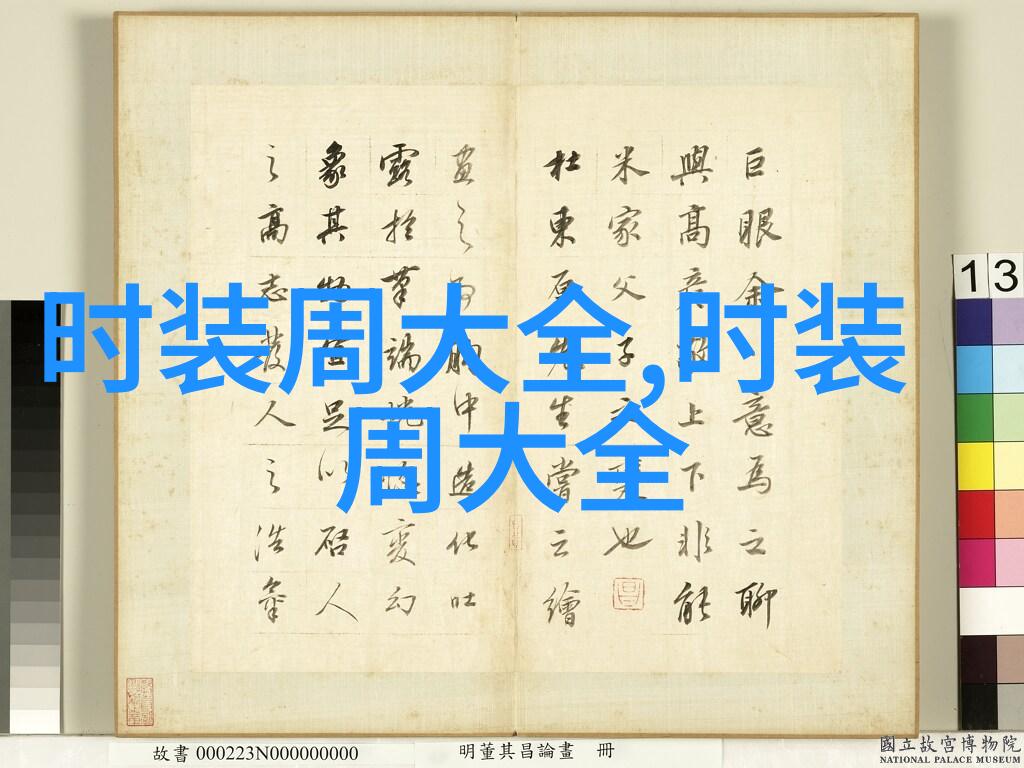 时装周大全,时装
周大全
巨眼余意焉聊
與高彦敬上下非能
米家父子之也
杜東原先生嘗云繪
畫之為胸中造化吐
露於筆端恍惚變幻
象其物宜足以啟人
之高志發人之浩氣
13
故書 000223N000000000
明董其昌論畫 冊
國立故宮博物院
NATIONAL PALACE MUSEUM